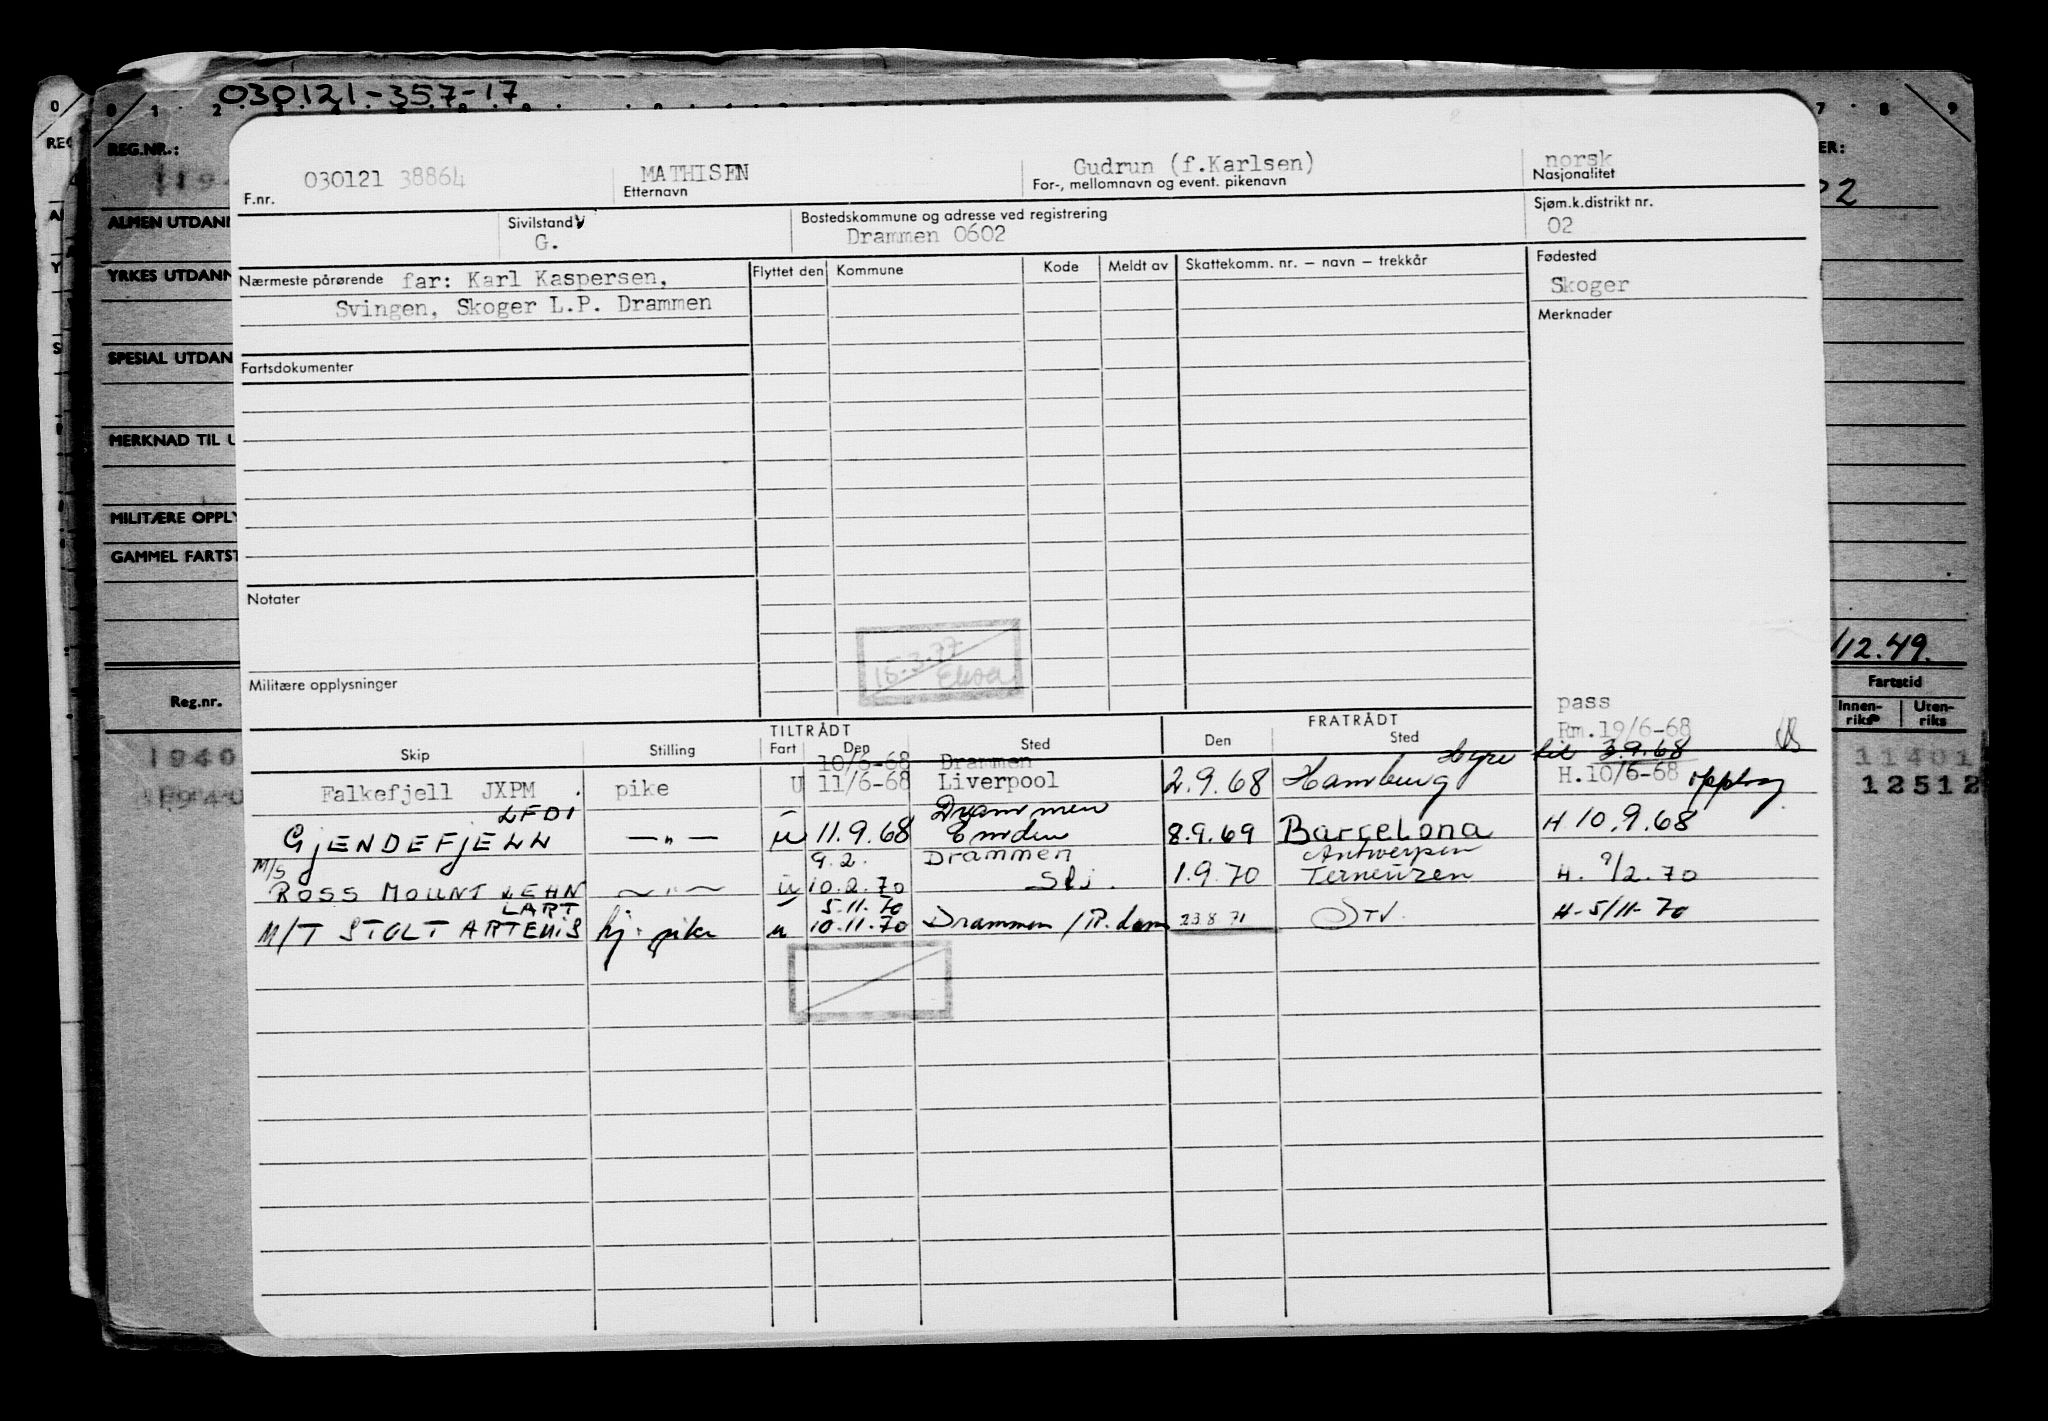 030121-357-17
0 1 2 7 8 9
REG.NR.:
ALMEN UTDANN
YRKES UTDANN
SPESIAL UTDAN
MERKNAD TIL U
MILITÆRE OPPLY
GAMMEL FARTST
Reg.nr.
1940
ER:
2
/12.49.
Fartstid
Innenriks Utenriks
11401
12512
F.nr. 030121 38864
MATHISEN
Etternavn
Gudrun (f.Karlsen)
For-, mellomnavn og event. pikenavn
norsk
Nasjonalitet
Sivilstand
G.
Bostedskommune og adresse ved registrering
Drammen 0602
Sjøm.k.distrikt nr.
02
Nærmeste pårørende far: Karl Kaspersen,
Svingen, Skoger L.P. Drammen
Flyttet den Kommune Kode Meldt av Skattekomm. nr. – navn – trekkår
Fødested
Skoger
Merknader
Fartsdokumenter
Notater
15.3.77
Militære opplysninger
pass
Rm.19/6-68
TILTRÅDT FRATRÅDT
Skip Stilling Fart Den Sted Den Sted
10/6-68 Drammen Hyre til 3.9.68
Falkefjell JXPM pike U 11/6-68 Liverpool 2.9.68 Hamburg H.10/6-68 opplag
LFDI Drammen
GJENDEFJELL —„— u 11.9.68 Emden 8.9.69 Barcelona H 10.9.68
M/S 9.2. Drammen Antwerpen
ROSS MOUNT LEHN —„— u 10.2.70 1.9.70 Terneuzen H. 9/2.70
LART 5.11.70
M/T STOLT ARTEMIS hj. pike u 10.11.70 Drammen / R.dam 23.8.71 H-5/11-70